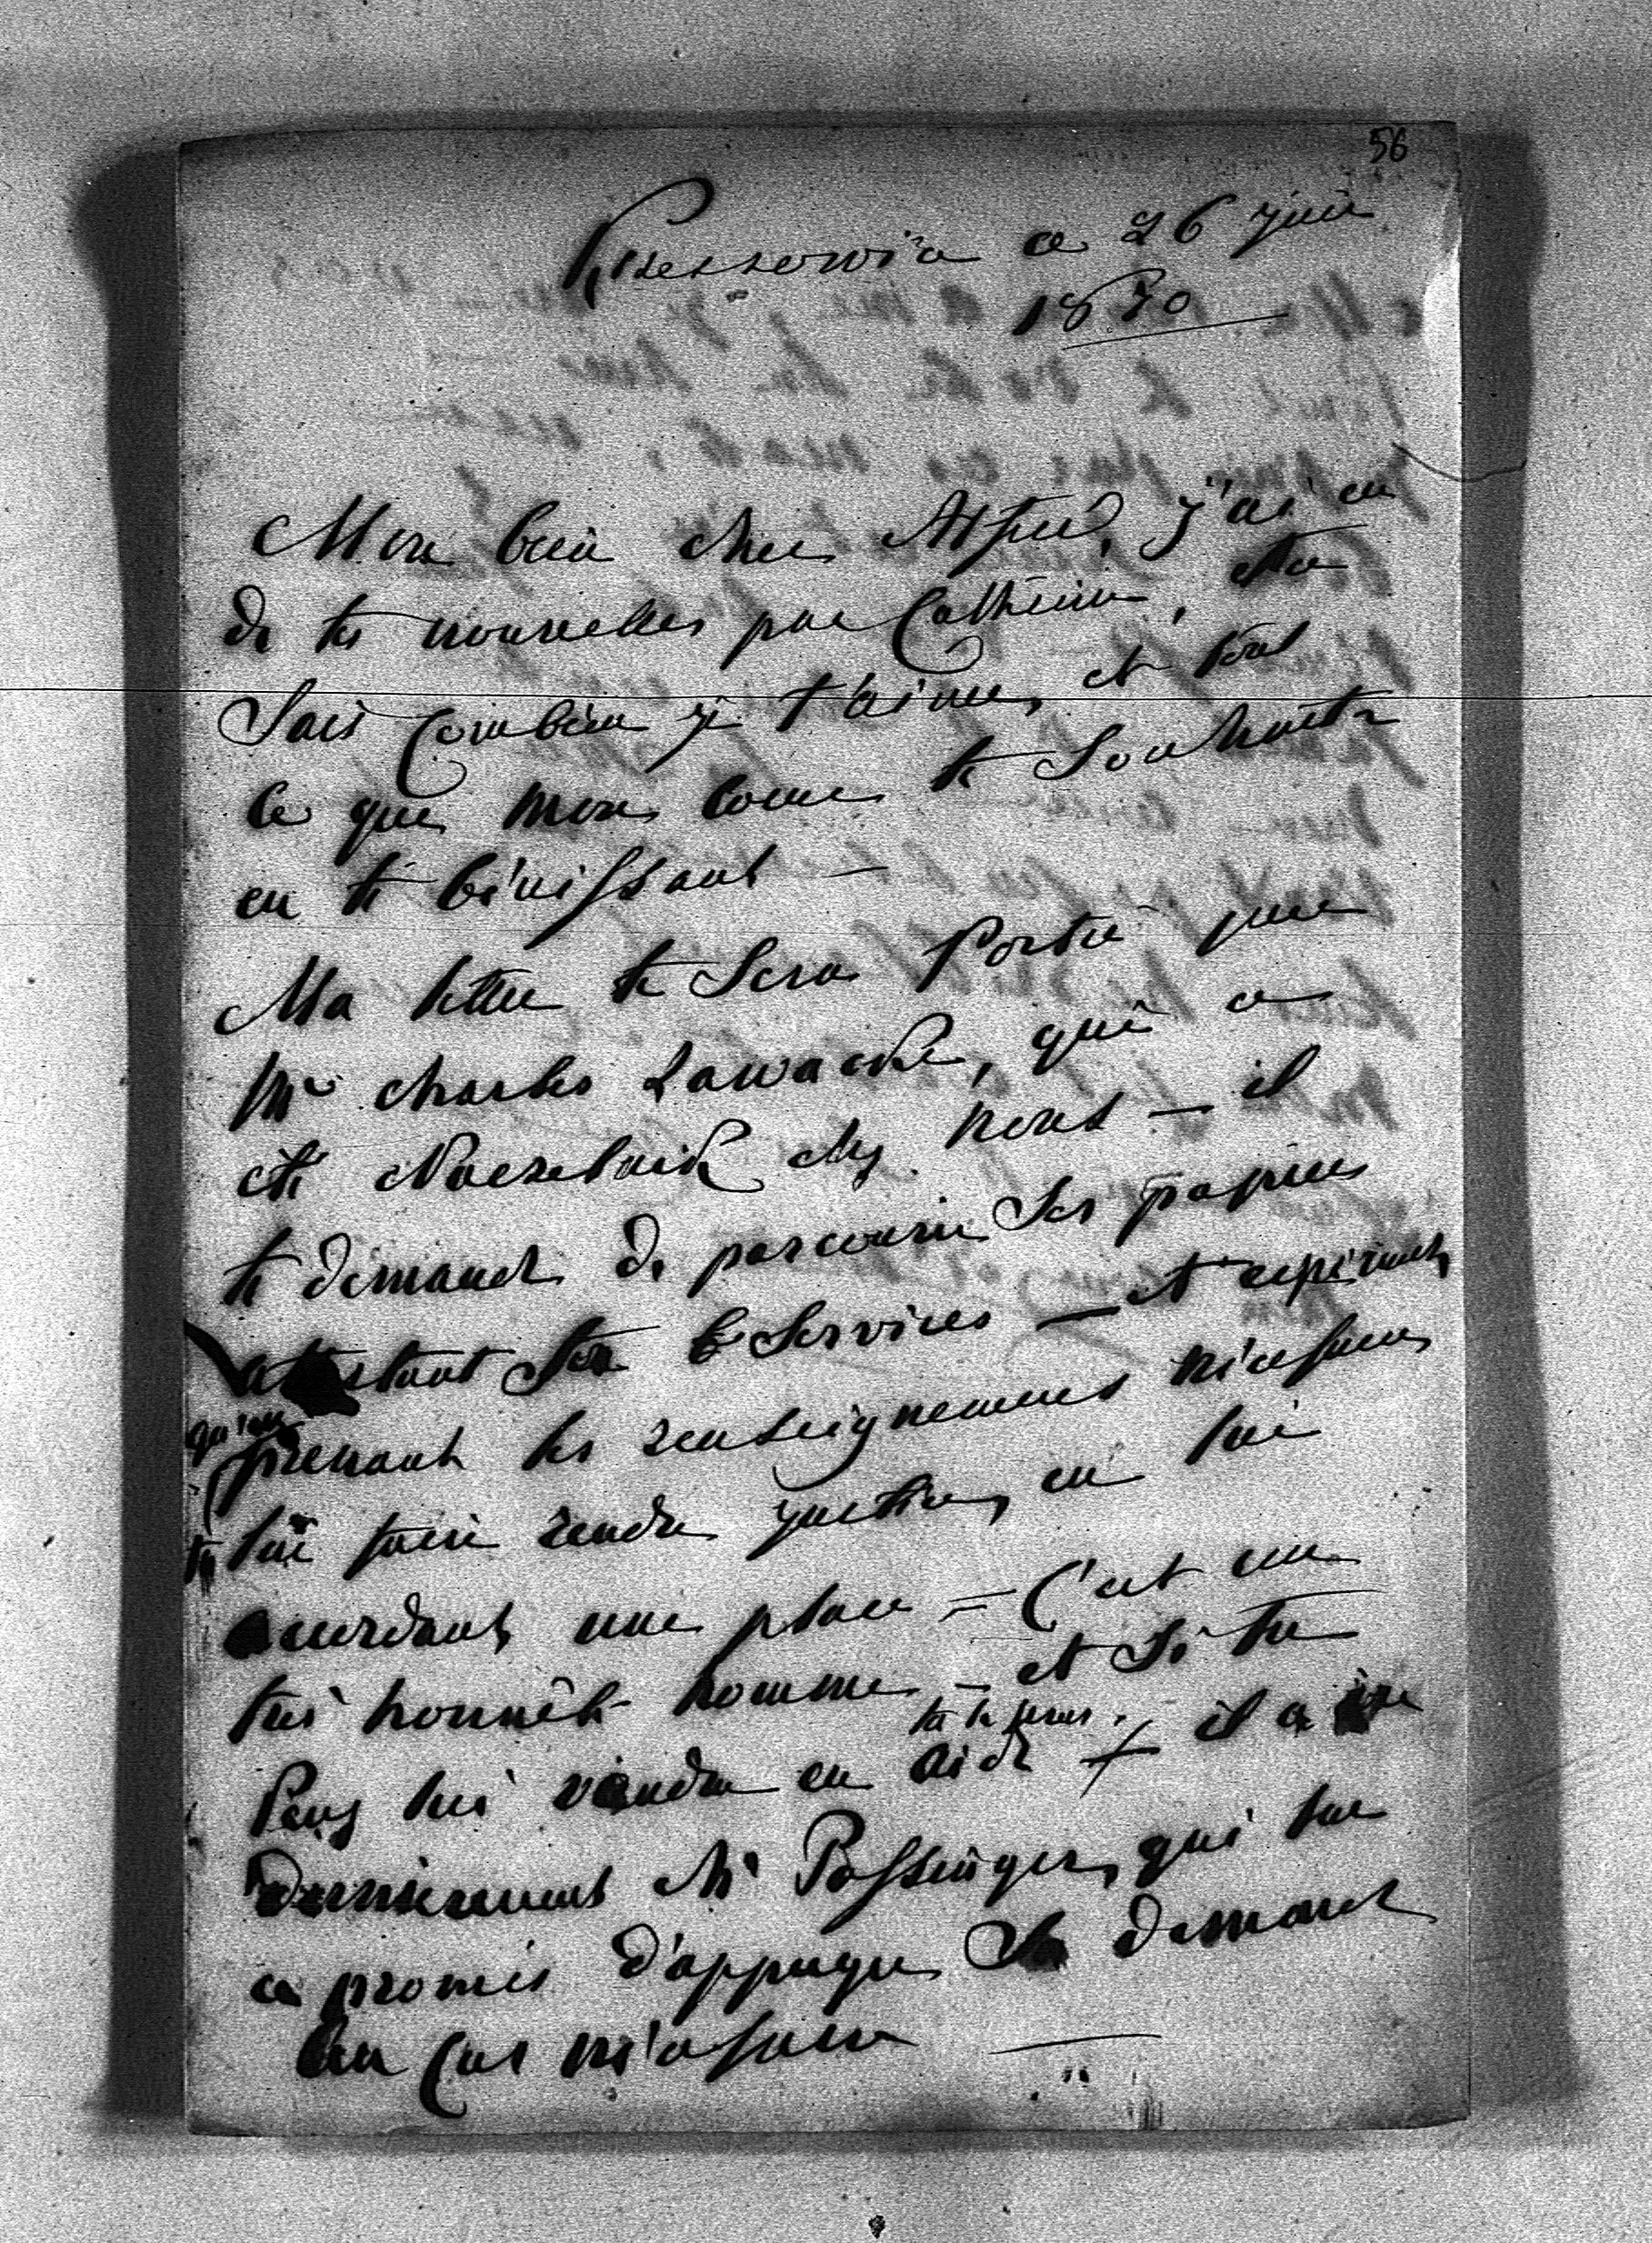 56
Krzeszowice ce 26 juin
1870
Mon bien cher Alfred, j'ai eu
de tes nouvelles par Catherine, tu
Sais Combien je t'aime, et tout
ce que mon coeur te Souhaite
en te bénissant —
Ma lettre te Sera Portée par
Mr Charles Lawacki, qui a
été chez nous — il
te demande de parcourir Ses papiers
attestant Ses Services — et
qu'en
prenant les renseignements nécessaires
tu lui fasse rendre justice, en lui
accordant une place = C'est un
très honnête homme — et Si tu
Peux lui viendre en aide + il a
tu le feras.
dernièrement Mr Possinger, qui lui
a promis d'appuyer Sa demande
au Cas